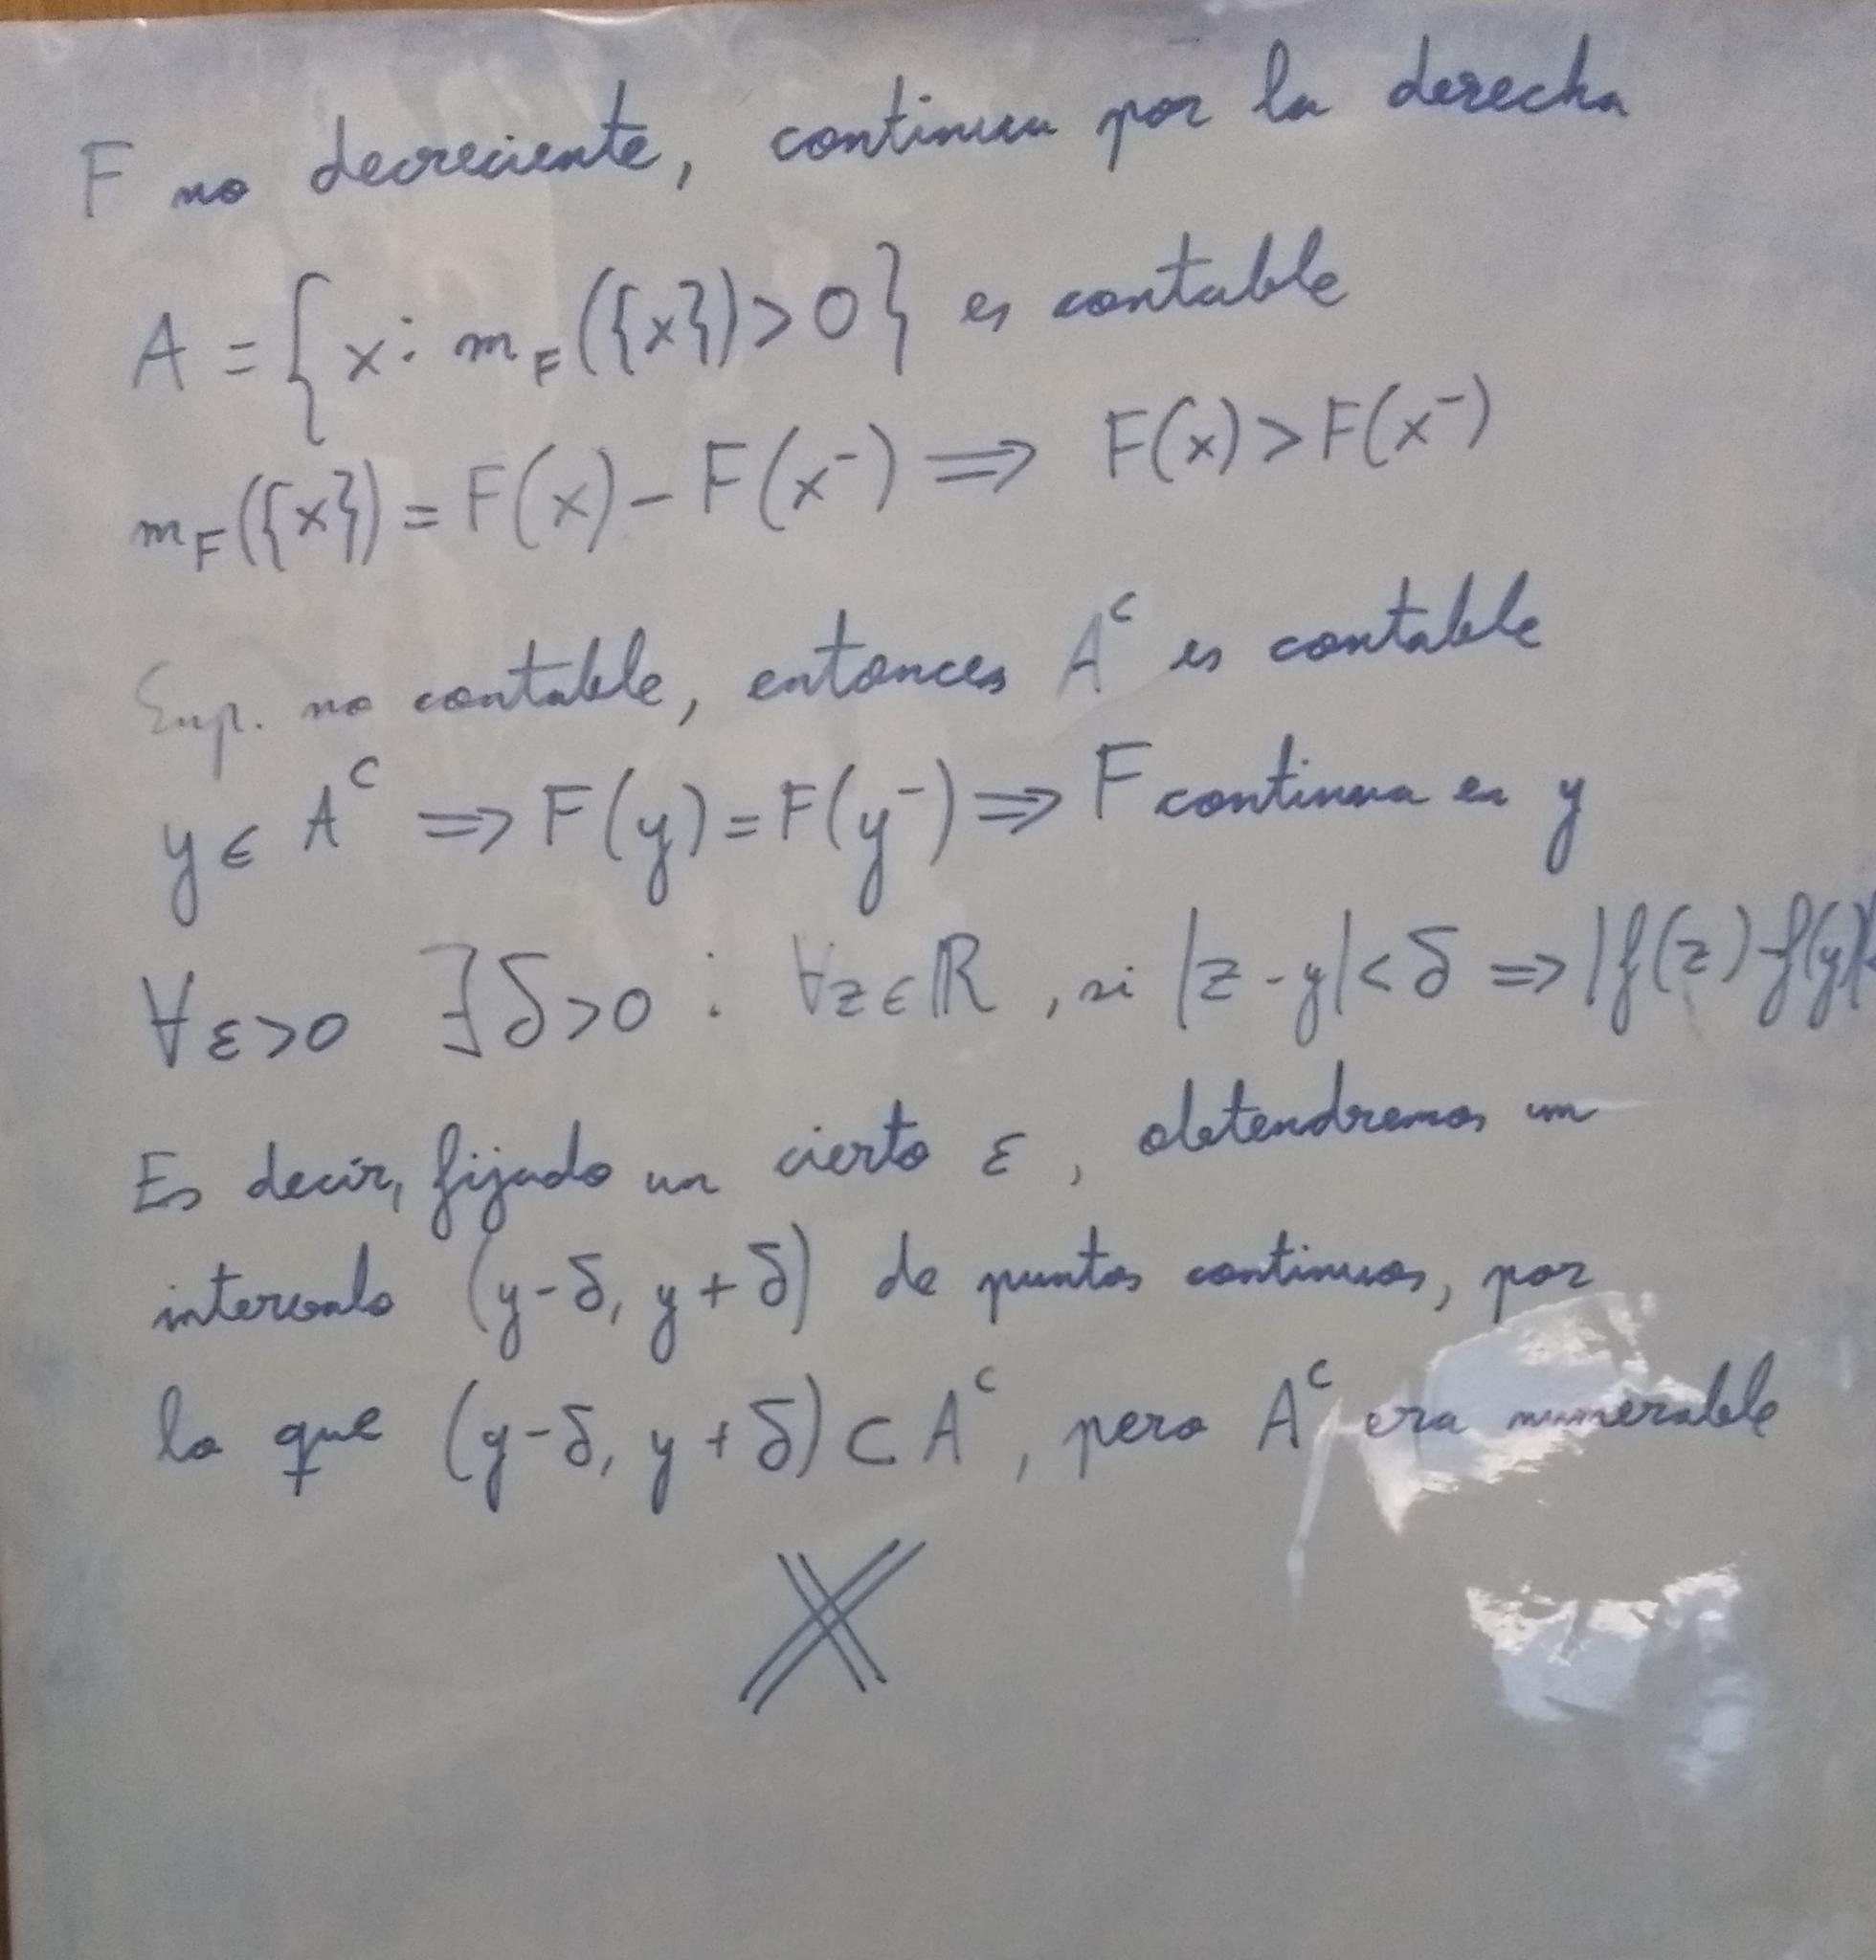 F no decreciente, continua por la derecha
A = {x : m_F({x}) > 0} es contable
m_F({x}) = F(x) - F(x⁻) ⟹ F(x) > F(x⁻)
Sup. no contable, entonces A^c es contable
y ∈ A^c ⟹ F(y) = F(y⁻) ⟹ F continua en y
∀ε>0 ∃δ>0 : ∀z∈ℝ, si |z-y|<δ ⟹ |f(z)-f(y)|<
Es decir, fijado un cierto ε, obtendremos un
intervalo (y-δ, y+δ) de puntos continuos, por
lo que (y-δ, y+δ) ⊂ A^c, pero A^c era numerable